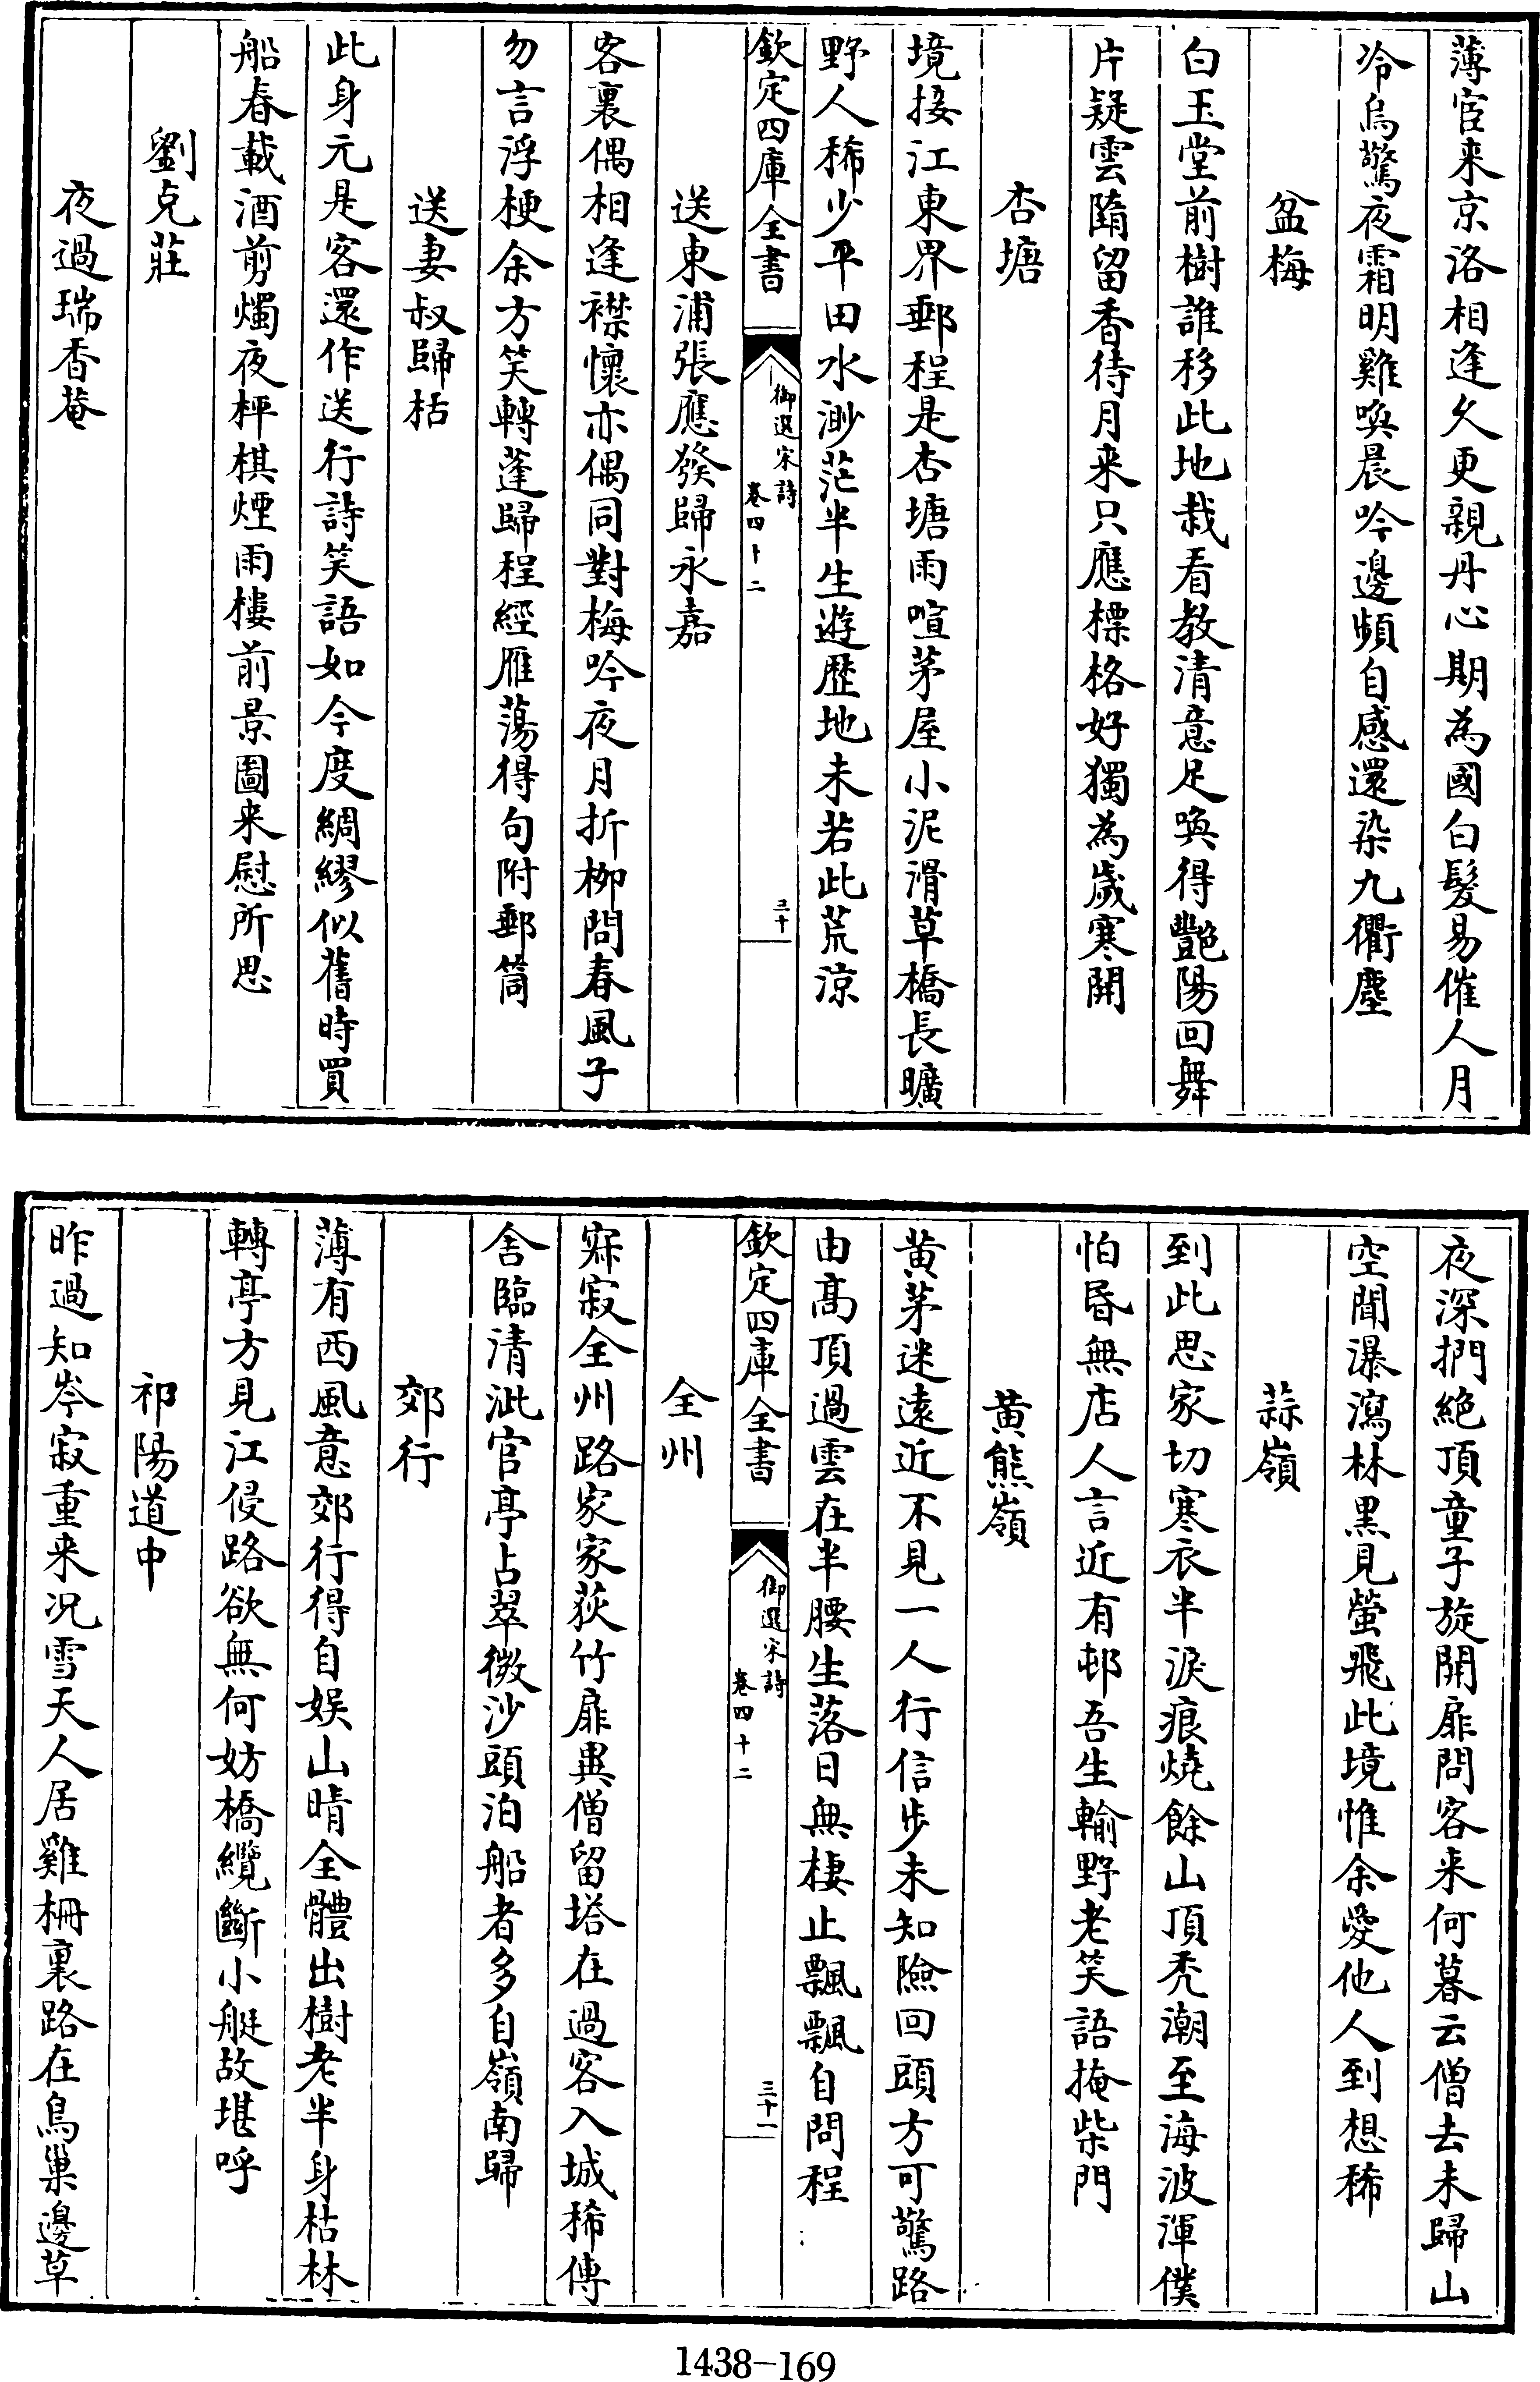 薄宦来京洛相逢久更親丹心期為國白髮易催人月
冷烏驚夜霜明雞喚晨吟邊頻自感還染九衢塵
盆梅
白玉堂前樹誰移此地栽看教清意足喚得艷陽回舞
片疑雲隨留香待月来只應標格好獨為歲寒開
杏塘
境接江東界郵程是杏塘雨喧茅屋小泥滑草橋長曠
野人稀少平田水渺茫半生遊歷地未若此荒涼
欽定四庫全書
御選宋詩
卷四十二
三十
送東浦張應發歸永嘉
客裏偶相逢襟懷亦偶同對梅吟夜月折柳問春風子
勿言浮梗余方笑轉蓬歸程經雁蕩得句附郵筒
送妻叔歸栝
此身元是客還作送行詩笑語如今度綢繆似舊時買
船春載酒剪燭夜枰棋煙雨樓前景圖来慰所思
劉克莊
夜過瑞香菴
夜深捫絕頂童子旋開扉問客来何暮云僧去未歸山
空聞瀑瀉林黑見螢飛此境惟余愛他人到想稀
蒜嶺
到此思家切寒衣半淚痕燒餘山頂秃潮至海波渾僕
怕昏無店人言近有邨吾生輸野老笑語掩柴門
黄熊嶺
黄茅迷遠近不見一人行信步未知險回頭方可驚路
由高頂過雲在半腰生落日無棲止飄飄自問程
欽定四庫全書
御選宋詩
卷四十二
三十一
全州
寂寂全州路家家荻竹扉異僧留塔在過客入城稀傳
舍臨清泚官亭占翠微沙頭泊船者多自嶺南歸
郊行
薄有西風意郊行得自娱山晴全體出樹老半身枯林
轉亭方見江侵路欲無何妨橋纜斷小艇故堪呼
祁陽道中
昨過知岑寂重来况雪天人居雞栅裏路在鳥巢邊草
1438-169